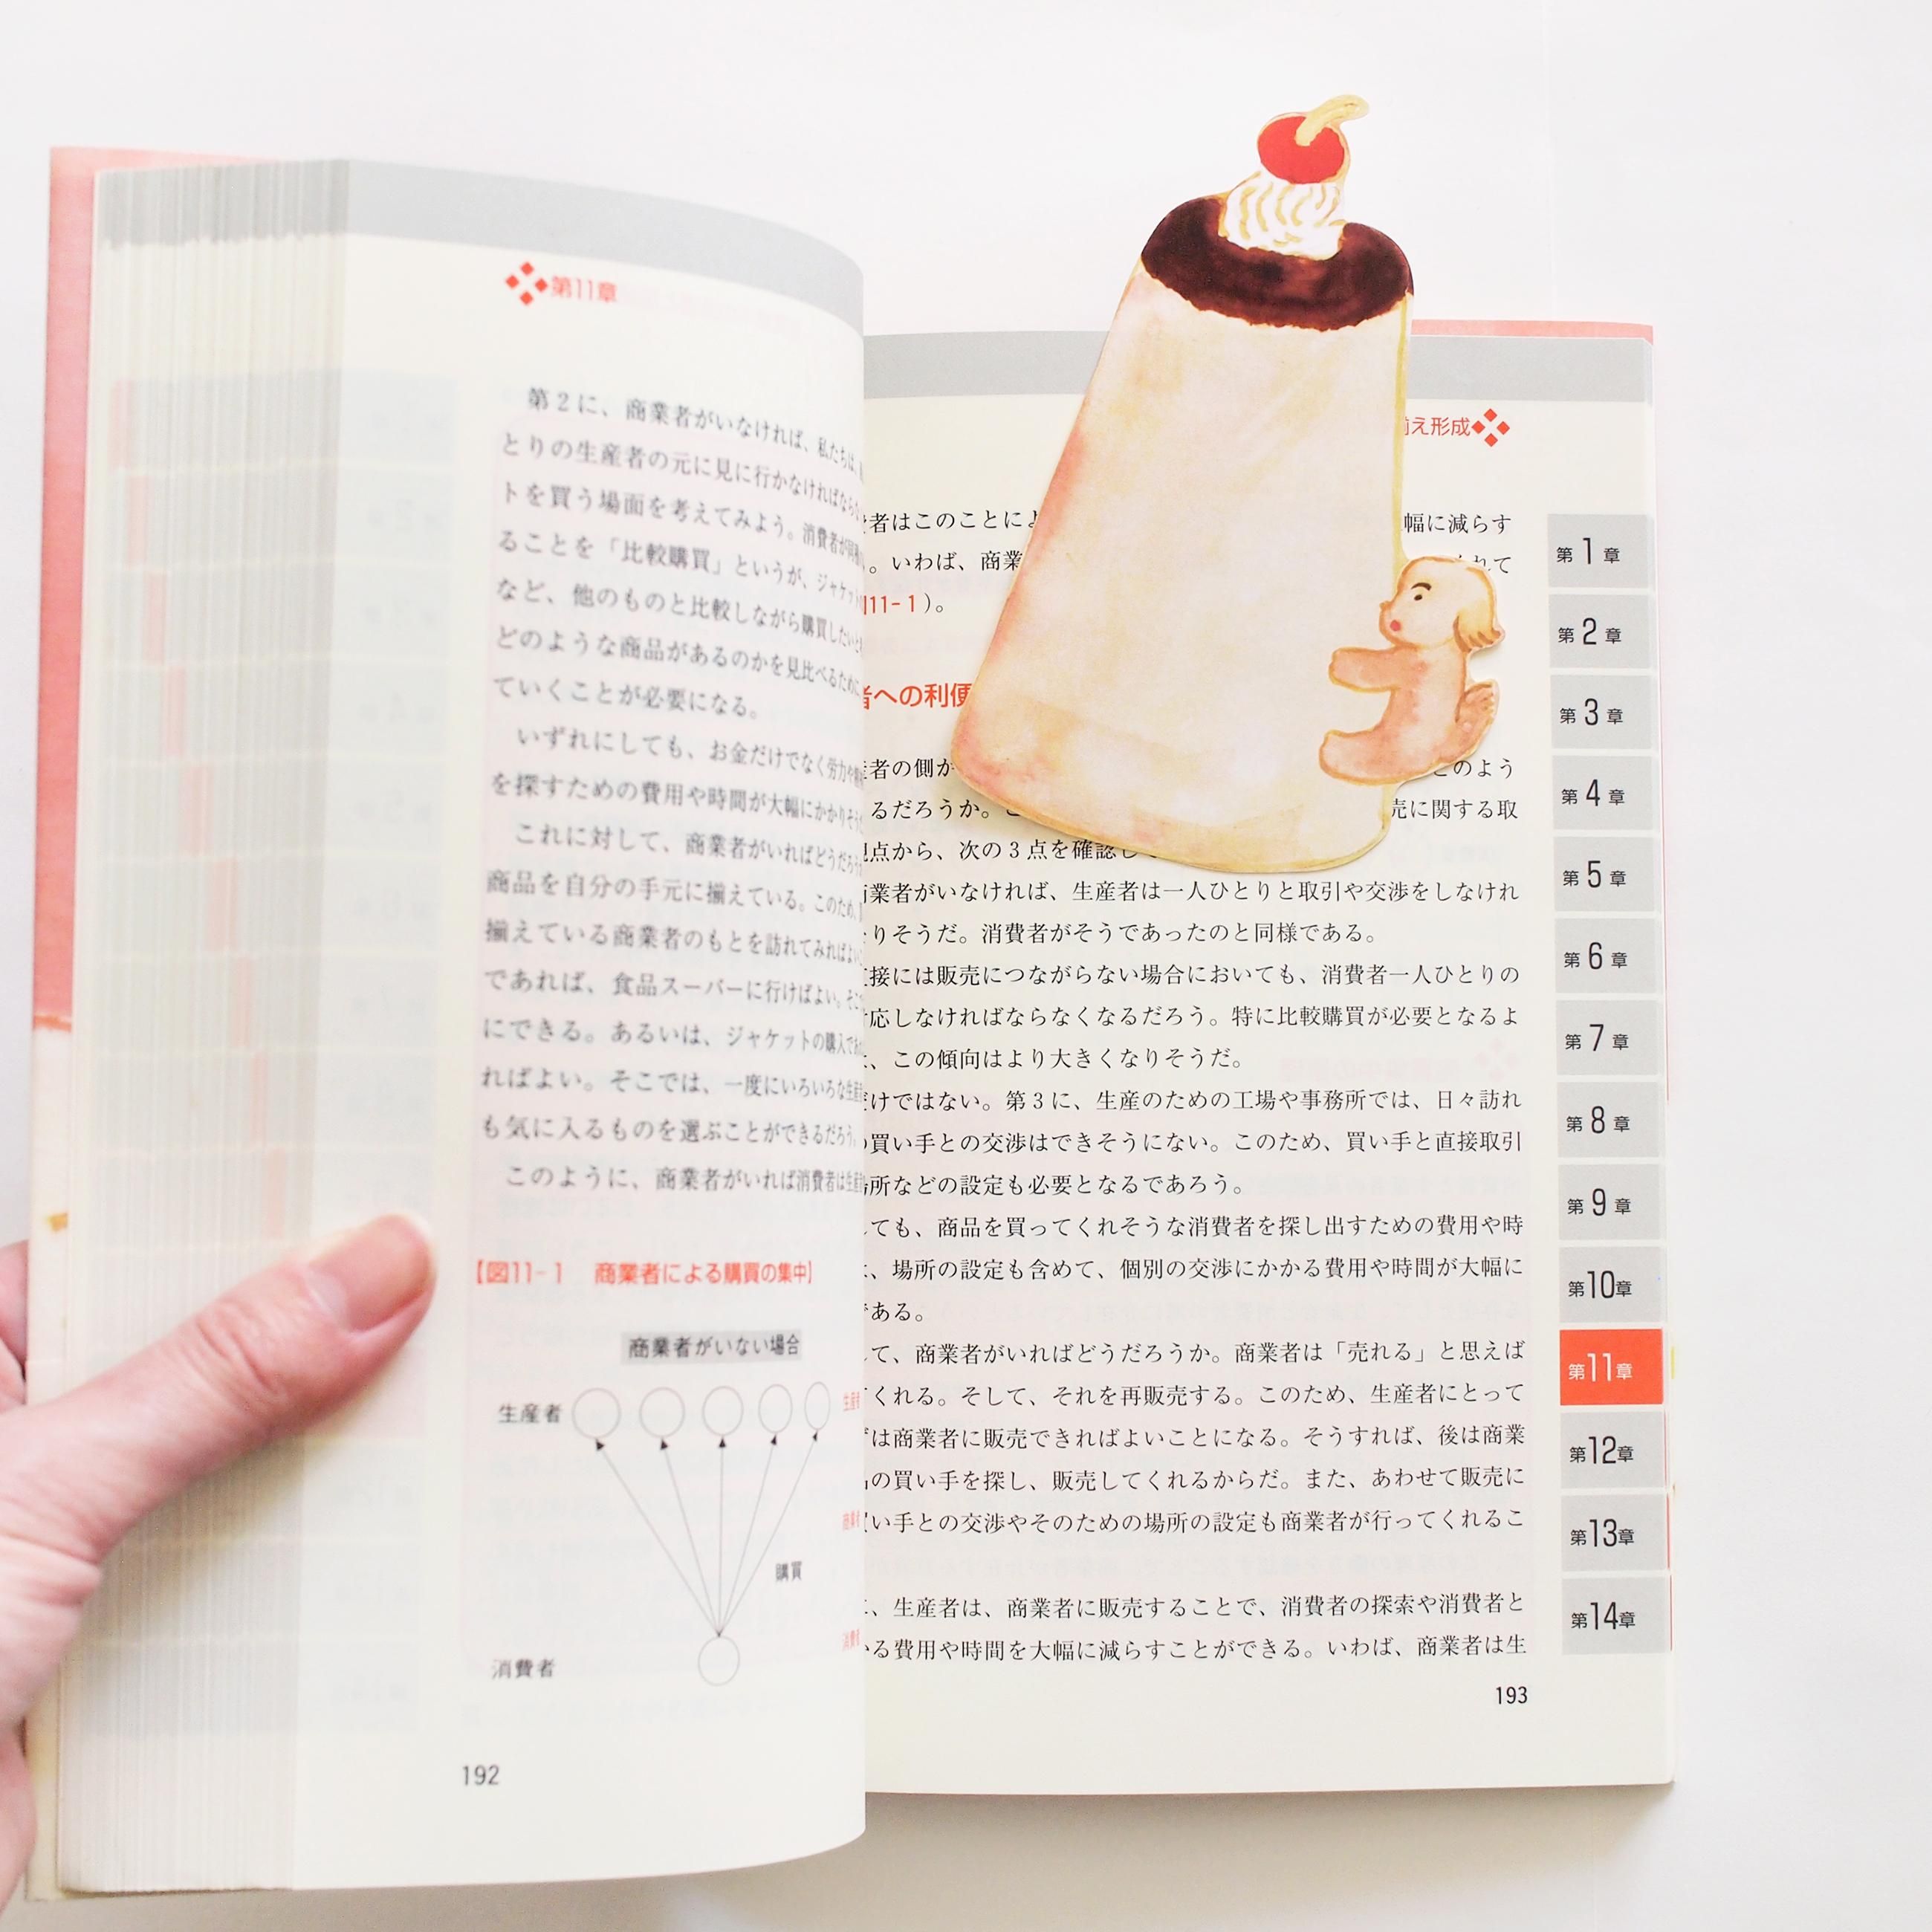 第11章
第2に、商業者がいなければ、私たちは、
とりの生産者の元に見に行かなければならな
トを買う場面を考えてみよう。消費者が
ることを「比較購買」というが、ジャケット
など、他のものと比較しながら購買したいと
どのような商品があるのかを見比べるために
ていくことが必要になる。
いずれにしても、お金だけでなく労力や
を探すための費用や時間が大幅にかかりそう
これに対して、商業者がいればどうだろう
商品を自分の手元に揃えている。このため、
揃えている商業者のもとを訪れてみればよい
であれば、食品スーパーに行けばよい。そこ
にできる。あるいは、ジャケットの購入であ
ればよい。そこでは、一度にいろいろな生産
も気に入るものを選ぶことができるだろう。
このように、商業者がいれば消費者は生産
【図11-1 商業者による購買の集中】
商業者がいない場合
生産者
購買
消費者
192
え形成
者はこのことに 幅に減らす
。いわば、商業 れて
11-1)。
者への利便
者の側が このよう
るだろうか。 売に関する取
点から、次の3点を確認し
商業者がいなければ、生産者は一人ひとりと取引や交渉をしなけれ
りそうだ。消費者がそうであったのと同様である。
直接には販売につながらない場合においても、消費者一人ひとりの
応しなければならなくなるだろう。特に比較購買が必要となるよ
、この傾向はより大きくなりそうだ。
だけではない。第3に、生産のための工場や事務所では、日々訪れ
の買い手との交渉はできそうにない。このため、買い手と直接取引
場所などの設定も必要となるであろう。
しても、商品を買ってくれそうな消費者を探し出すための費用や時
、場所の設定も含めて、個別の交渉にかかる費用や時間が大幅に
である。
して、商業者がいればどうだろうか。商業者は「売れる」と思えば
てくれる。そして、それを再販売する。このため、生産者にとって
ずは商業者に販売できればよいことになる。そうすれば、後は商業
の買い手を探し、販売してくれるからだ。また、あわせて販売に
買い手との交渉やそのための場所の設定も商業者が行ってくれるこ
、生産者は、商業者に販売することで、消費者の探索や消費者と
かる費用や時間を大幅に減らすことができる。いわば、商業者は生
193
第1章
第2章
第3章
第4章
第5章
第6章
第7章
第8章
第9章
第10章
第11章
第12章
第13章
第14章